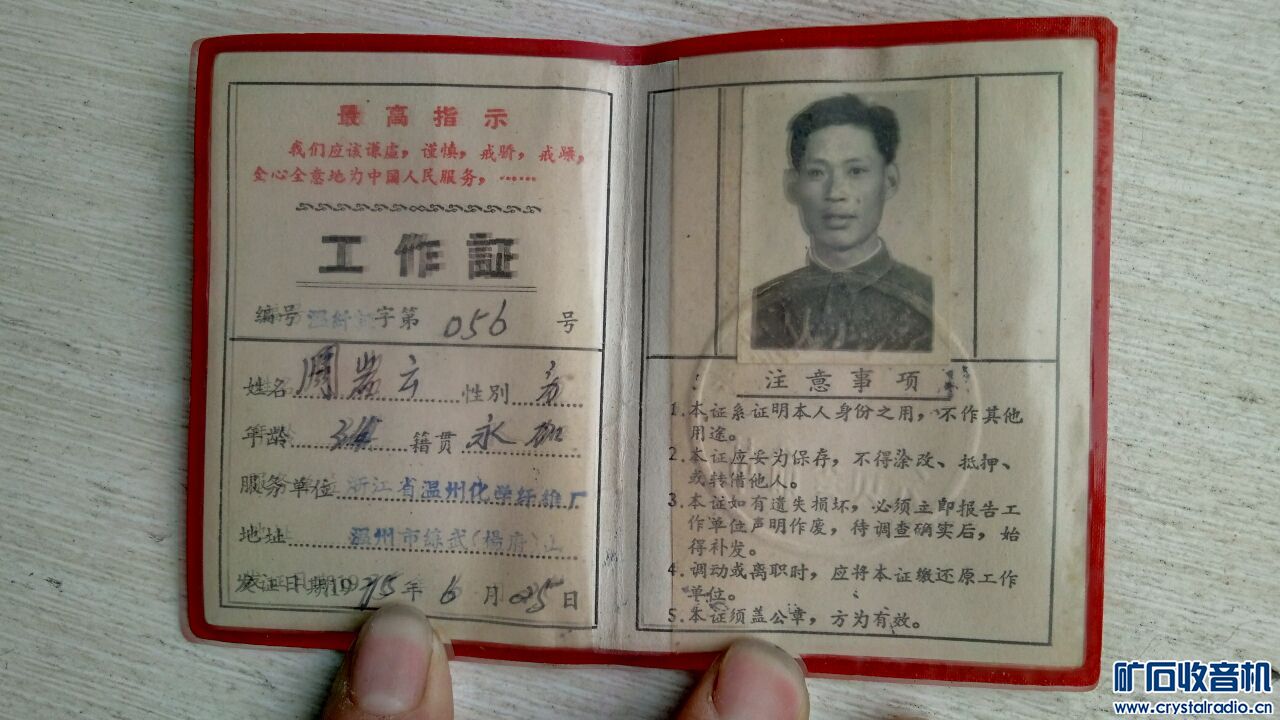 最高指示
我们应该谦虚，谨慎，戒骄，戒躁，
全心全意地为中國人民服务，……
工作証
编号 温纤 字第 056 号
姓名 周岩云 性别 男
年龄 籍贯 永加
服务单位 浙江省温州化学纤维厂
地址 温州市综武(楊府)山
发证日期1975年6月25日
注意事项
1.本证系证明本人身份之用，不作其他
用途。
2.本证应妥为保存，不得涂改、抵押、
或转借他人。
3.本证如有遗失损坏，必须立即报告工
作单位声明作废，待调查确实后，始
得补发。
4.调动或离职时，应将本证缴还原工作
单位。
5.本证须盖公章，方为有效。
矿石收音机
www.crystalradio.cn